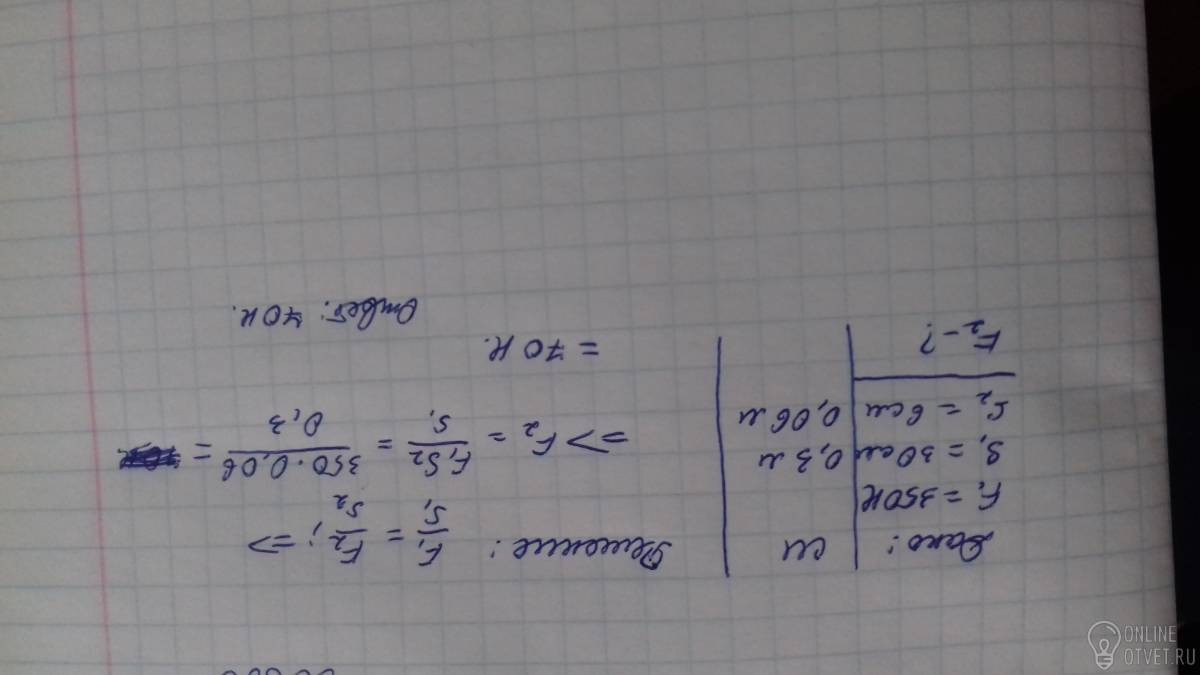 Дано:
F₁ = 350 Н
S₁ = 30 см
S₂ = 6 см
F₂ - ?
СИ
0,3 м
0,06 м
Решение: F₁/S₁ = F₂/S₂; =>
=> F₂ = F₁S₂/S₁ = 350·0,06/0,3 =
= 70 Н.
Ответ: 70 Н.
ONLINE
OTVET.RU